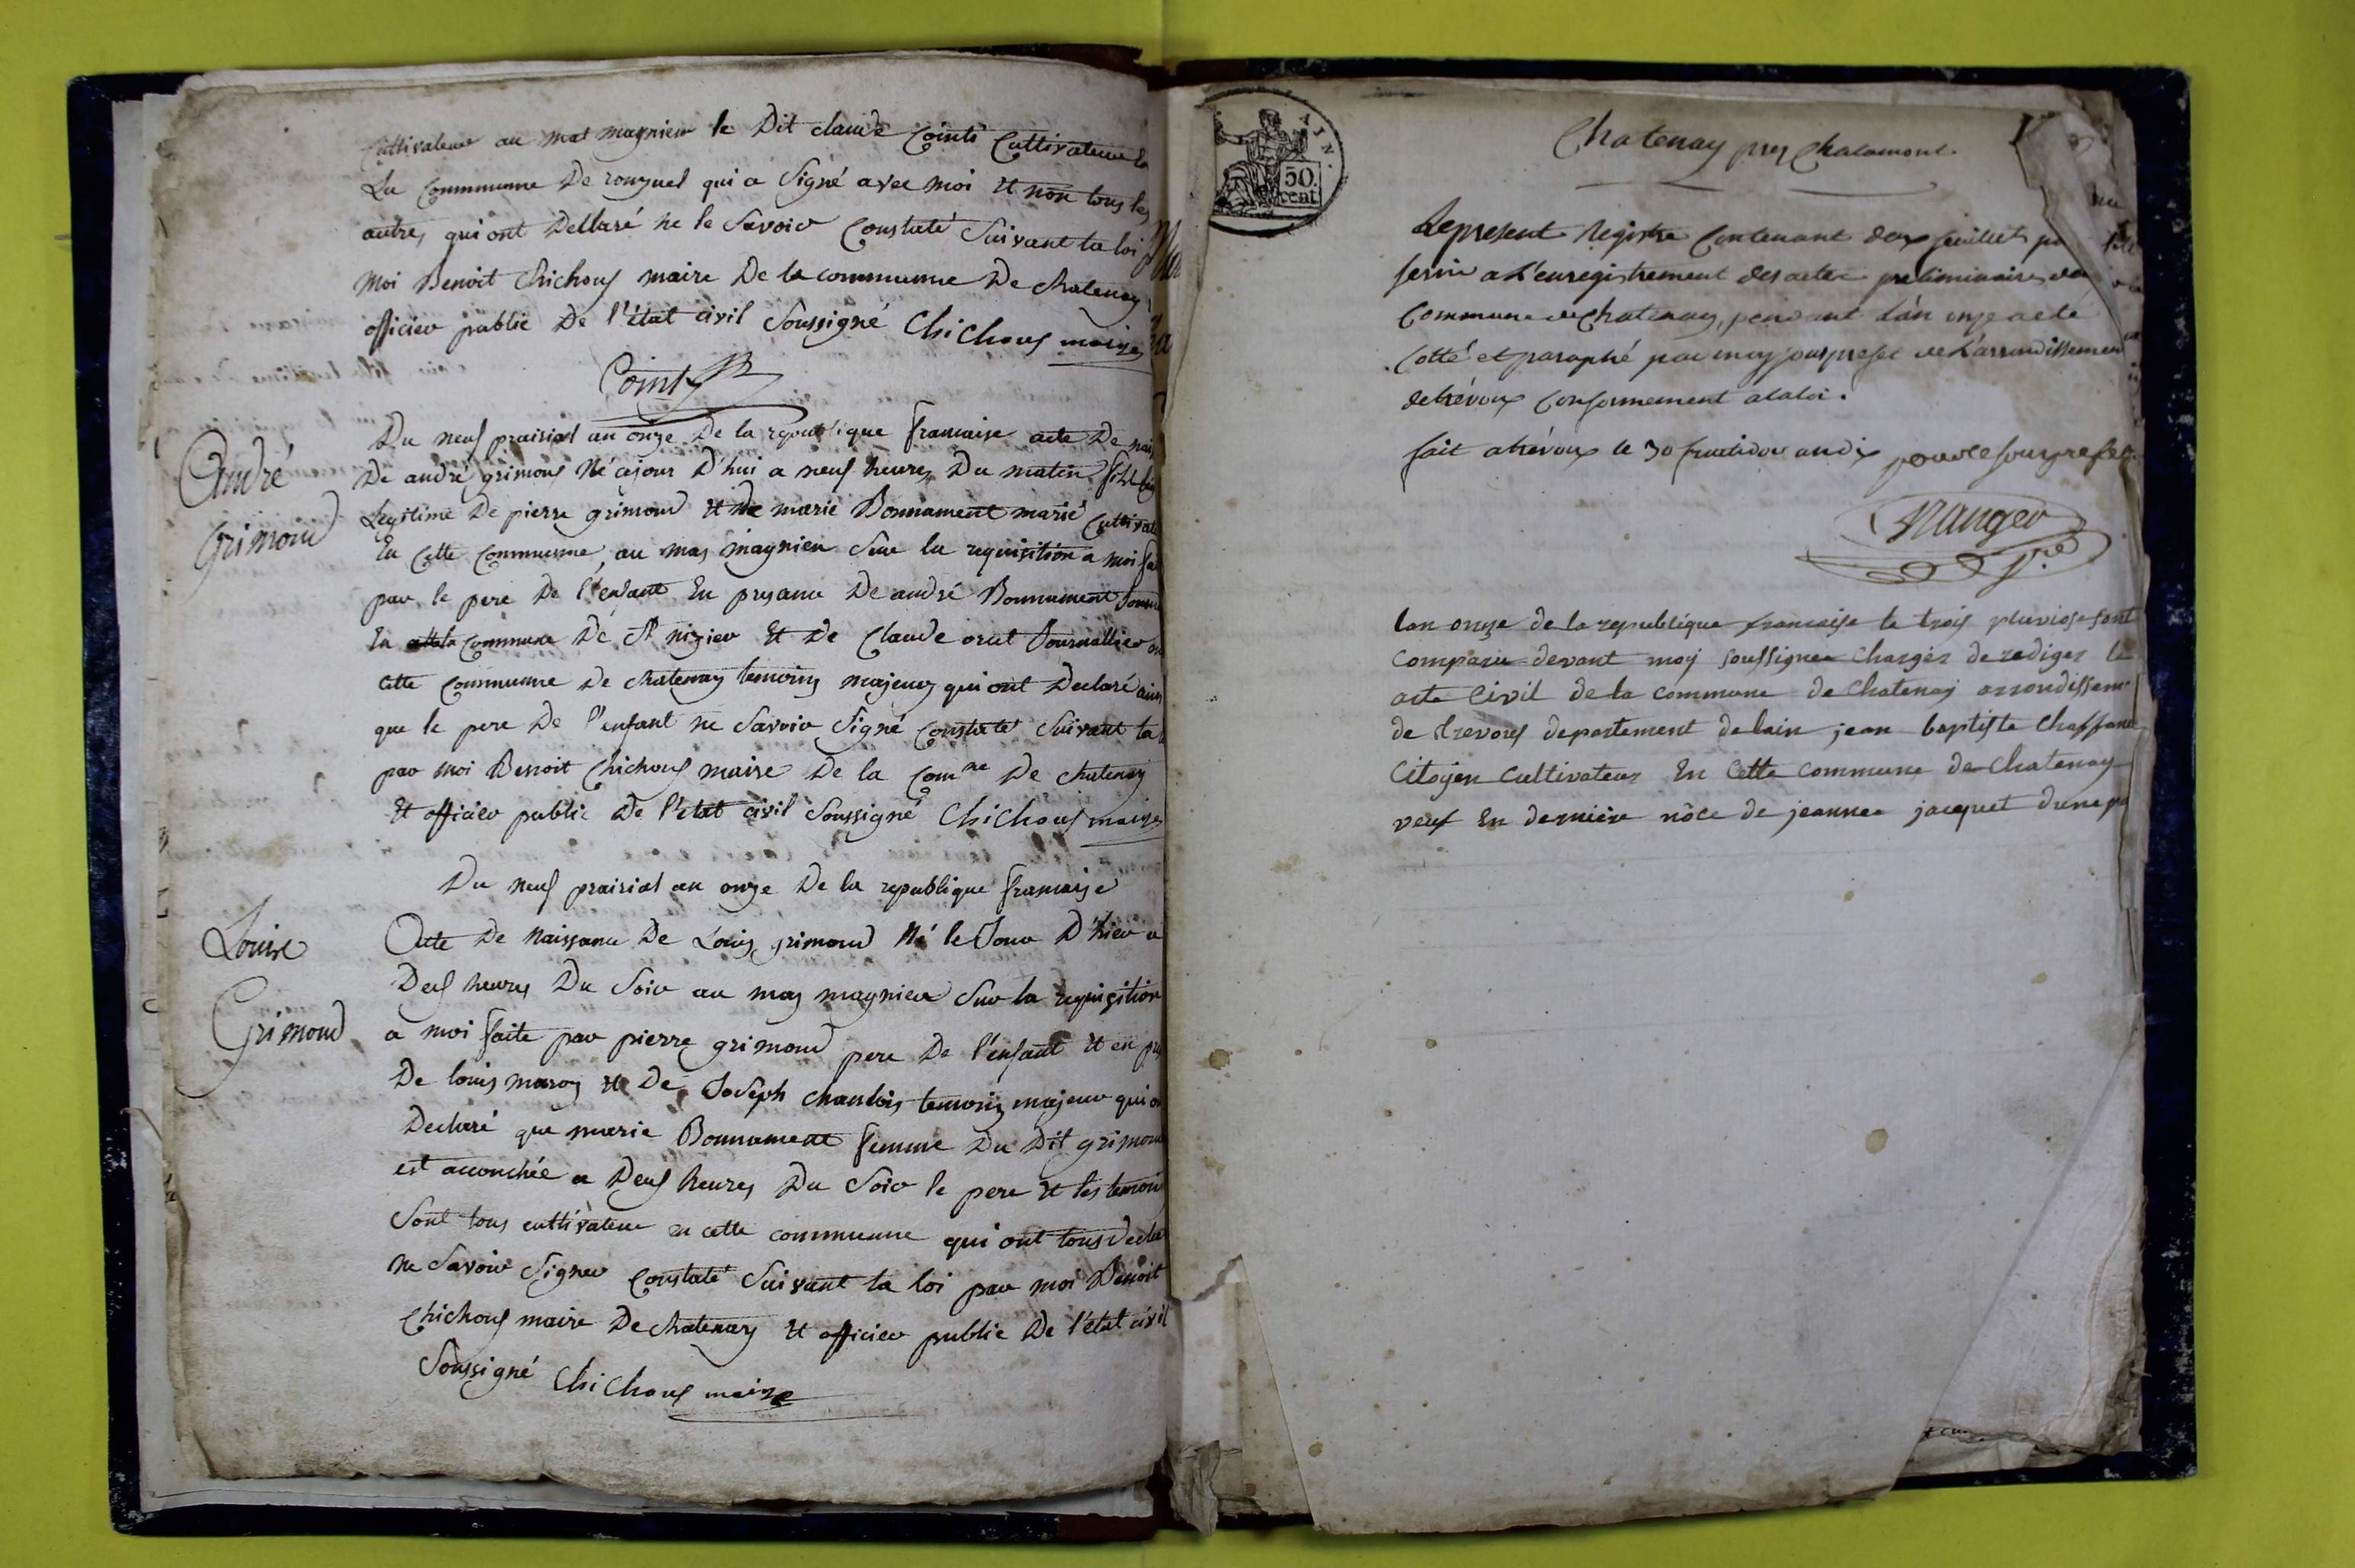 Cultivateur au mat magnieu le Dit claude Cointi Cultivateur
La Commune De ronzuel qui a Signé avec moi et non tous les
autres qui ont Dellaré ne le Savoir Constaté Suivant la loi
Moi Benoit Chichoux maire De la commune De chatenay
officier public De l'état civil Soussigné Chichoux maire
Coint
André
Grimoud
Du neuf prairial an onze De la republique francaise acte De
De andré grimoud Né cejour D'hui a neuf heures Du matin fils
Legitime De pierre grimoud et De marie Bonnament marié
En Cette Commune, au mas magnieu Sur la requisition a moi
par le pere De l'enfant En presance De andré Bonnament
En Commune De St nizier Et De Claude orut Journallier
Cette Commune De chatenay temoins majeurs qui ont Declaré
que le pere De l'enfant ne Savoir Signé Constaté Suivant la
par moi Benoit Chichoux maire De la Comne De chatenay
Et officier public De l'etat civil Soussigné Chichoux maire
Louise
Grimoud
Du neuf prairial an onze De la republique francaise
Acte De Naissance De Louis grimoud Né le Jour D'hier a
Deux heures Du Soir au mas magnieu Sur la requisition
a moi faite par pierre grimoud pere De l'enfant et en
De louis maroz et De Joseph chanlois temoins majeur qui
Declaré que marie Bonnament femme Du Dit grimoud
est accouchée a Deux heures Du Soir le pere et les
Sont tous cultivateur en cette commune qui ont tous
Ne Savoir Signer Constaté Suivant la loi par moi Benoit
Chichoux maire De chatenay et officier public De l'état civil
Soussigné Chichoux maire
AIN.
50.
cent
Chatenay pres Chalamont
Le present Registre Contenant deux feuillets
servir a l'enregistrement des actes preliminaires
Commune de chatenay, pendant l'an onze a été
Cotté et paraphé par moy sousprefet de l'arrondissement
detrévoux Conformement alaloi.
fait atrévoux le 30 fructidor an dix pour le sousprefet
Mangeo
lan onze de la republique francaise le trois pluviose sont
comparu devant moy soussigne chargés de rediger le
acte Civil de la commune de chatenay arrondissemt
de trevoux departement delain jean baptiste
Citoyen Cultivateur En Cette commune de chatenay
veuf En derniere nôce de jeanne jacquet